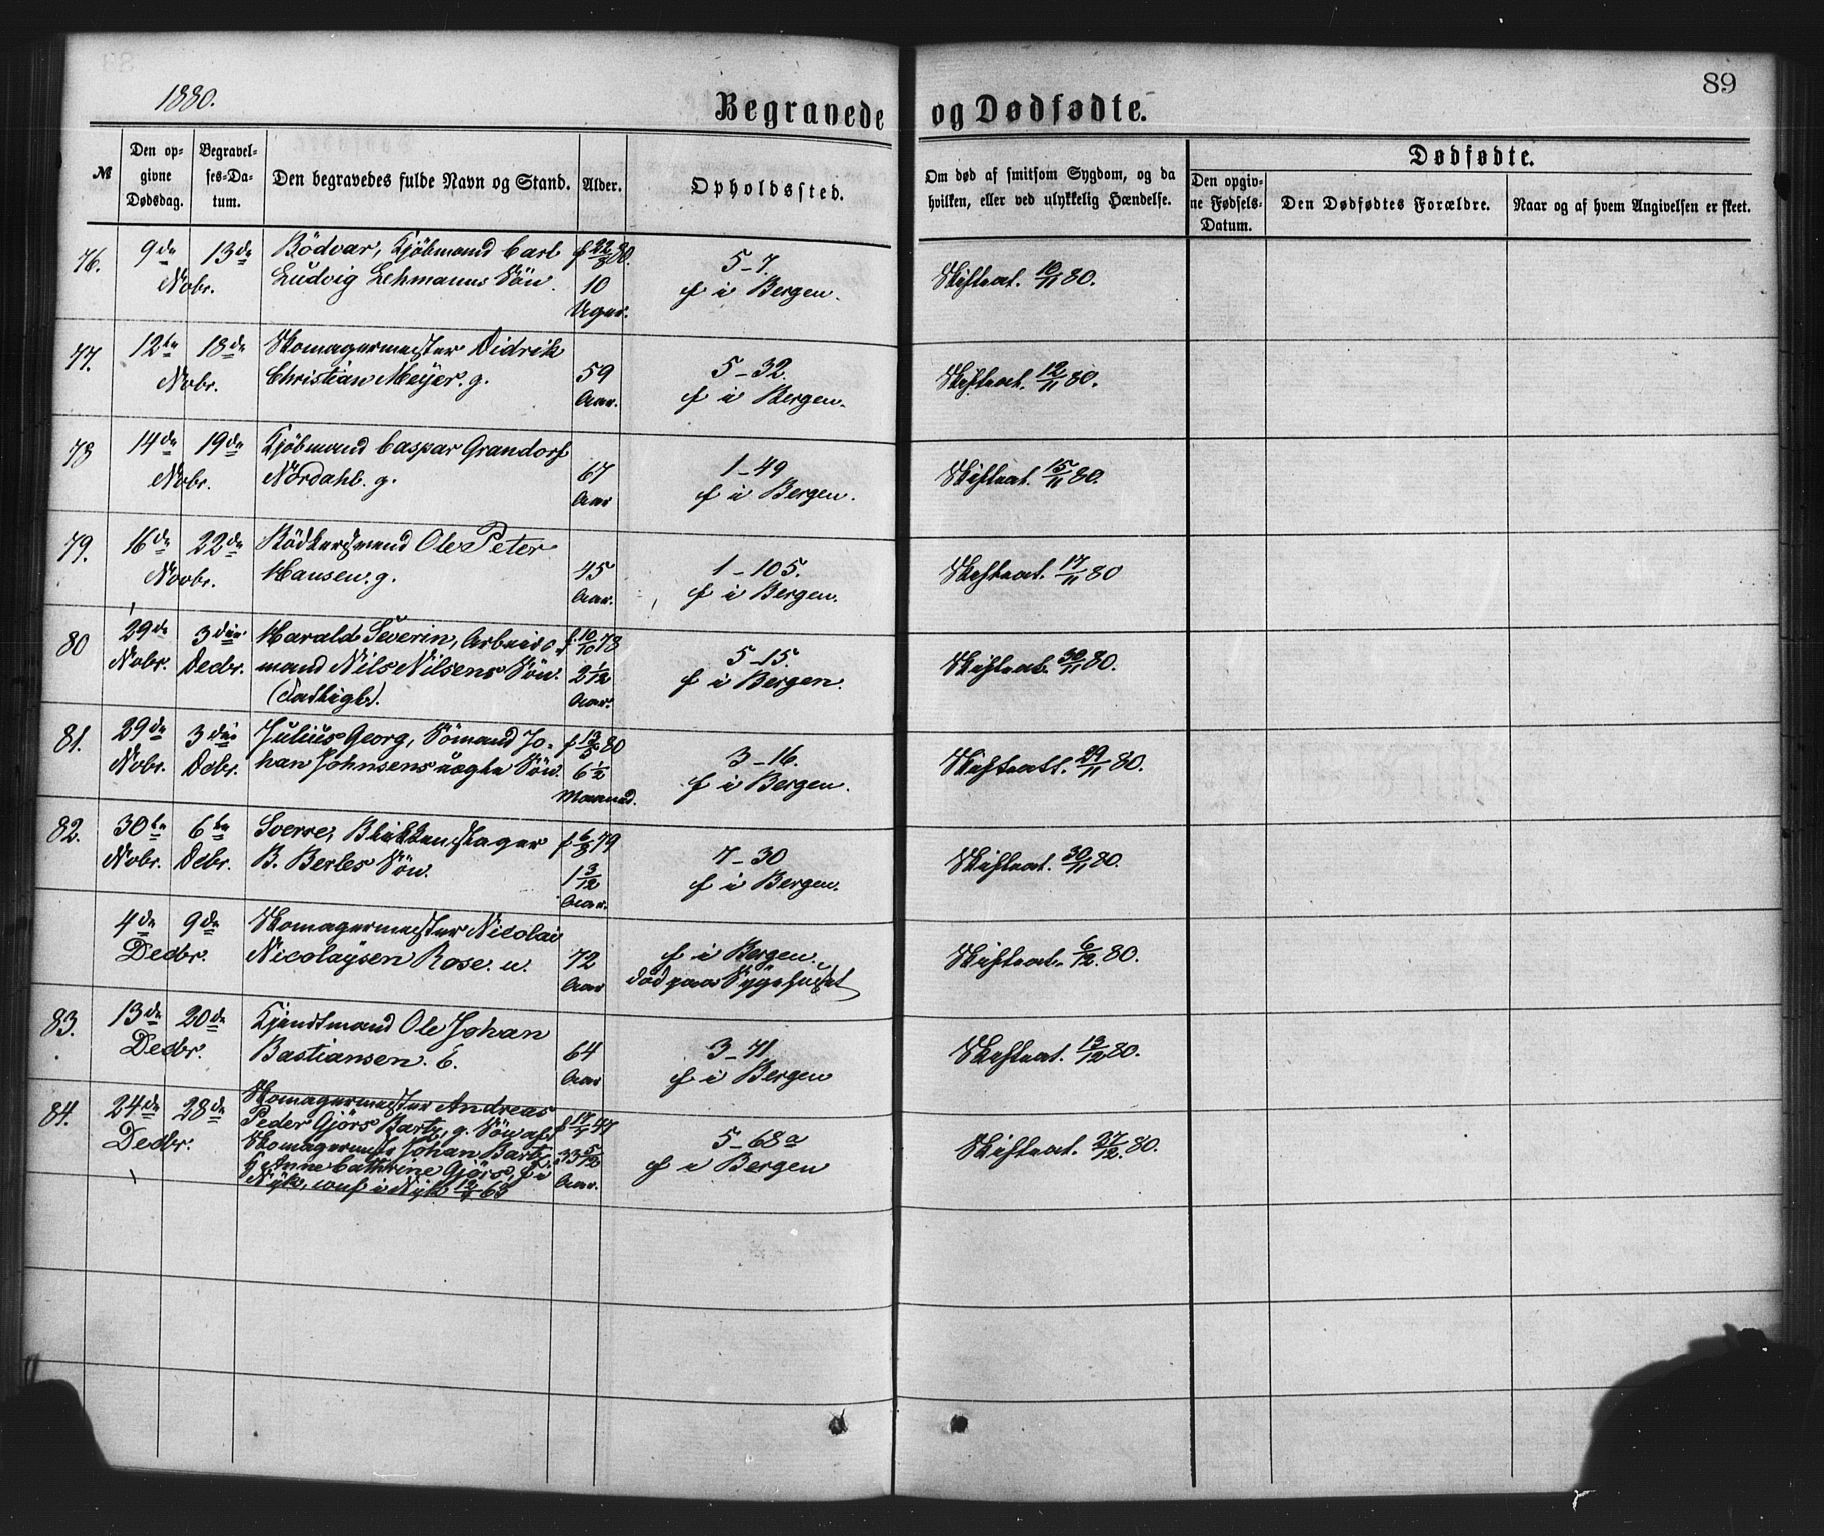 89
1880.
Begravede og Dødfødte.
№
Den op-
givne
Dødsdag.
Begravel-
ses-Da-
tum.
Den begravedes fulde Navn og Stand.
Alder.
Opholdssted.
Om død af smitsom Sygdom, og da
hvilken, eller ved ulykkelig Hændelse.
Dødfødte.
Den opgiv-
ne Fødsels-
Datum.
Den Dødfødtes Forældre.
Naar og af hvem Angivelsen er skeet.
76. 9de 13de Bödvar, Kjöbmand Carl f 22/8 80.
Nobr. Ludvig Lehmanns Sön. 10 Uger.
5-7.
f i Bergen.
Skifteat. 10/11 80.
77. 12te 18de Skomagermester Didrik
Nobr. Christian Meyer. g. 59 Aar.
5-32.
f i Bergen.
Skifteat. 12/11 80.
78 14de 19de Kjöbmand Caspar Grandorf
Nobr. Nordahl. g. 67 Aar
1-49
f i Bergen.
Skifteat. 15/11 80.
79. 16de 22de Bödkersvend Ole Peter
Novbr. Hansen. g. 45 Aar.
1-105.
f i Bergen.
Skifteat. 17/11 80
80 29de 3die Harald Severin, Arbeids- f. 10/10 78
Nobr. Decbr. mand Nils Nilsens Sön. 2 1/12 Aar.
(Fattigl).
5-15.
f i Bergen.
Skifteat. 30/11 80.
81. 29de 3die Julius Georg, Sömand Jo- f 13/5 80
Nobr. Dcbr. han Johnsens uægte Sön. 6 1/2 Maaned.
3-16.
f i Bergen.
Skifteatt. 29/11 80.
82. 30te 6te Sverre, Blikkenslager f 6/8 79
Nobr. Dcbr. B. Berles Sön. 1 3/12 Aar.
7-30
f i Bergen.
Skifteat. 30/11 80.
4de 9de Skomagermester Nicolai
Decbr. Nicolaysen Rose. u. 72 Aar
f i Bergen.
död paa Sygehuset
Skifteat. 6/12. 80.
83. 13de 20de Ole Johan
Decbr. Bastiansen. E. 64 Aar
3-41
f i Bergen
Skifteat. 13/12 80.
84. 24de 28de Skomagermester Andreas
Decbr. Peder Gjörs Bartz, g. Sön af f 17/7 47
Skomagermester Johan Bartz 33 5/12 Aar.
& Anne Cathrine Gjörs, f i
Nyk, conf i Nyk
5-68a
f i Bergen
Skifteat. 27/12. 80.